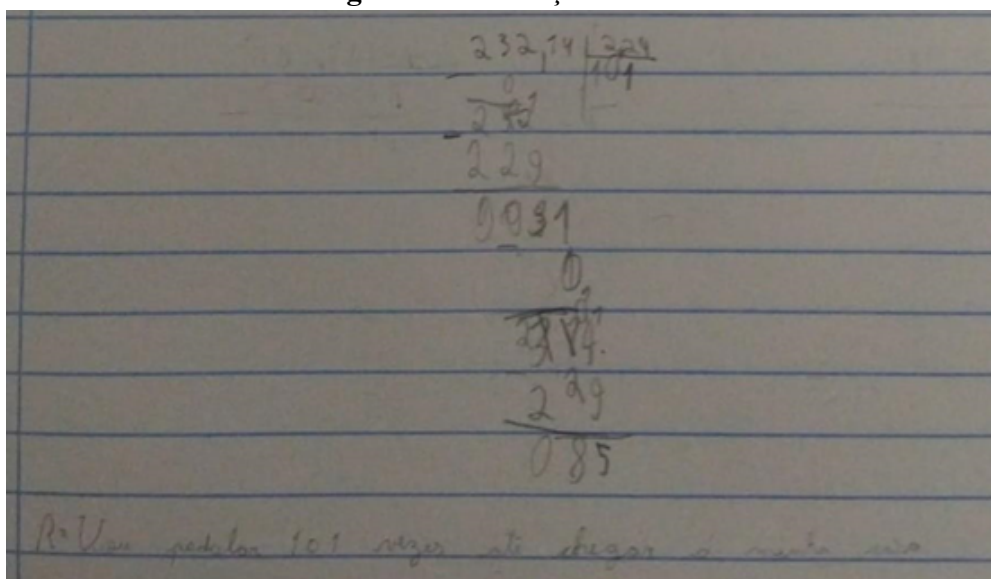 232,14 | 2,29
- 0 101
- 232
229
0031
0
314
229
085
R= Vou pedalar 101 vezes até chegar à minha